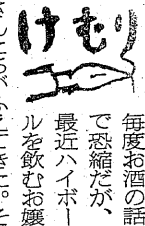 けむり
毎度お酒の話
で恐縮だが、
最近ハイボー
ルを飲むお嬢